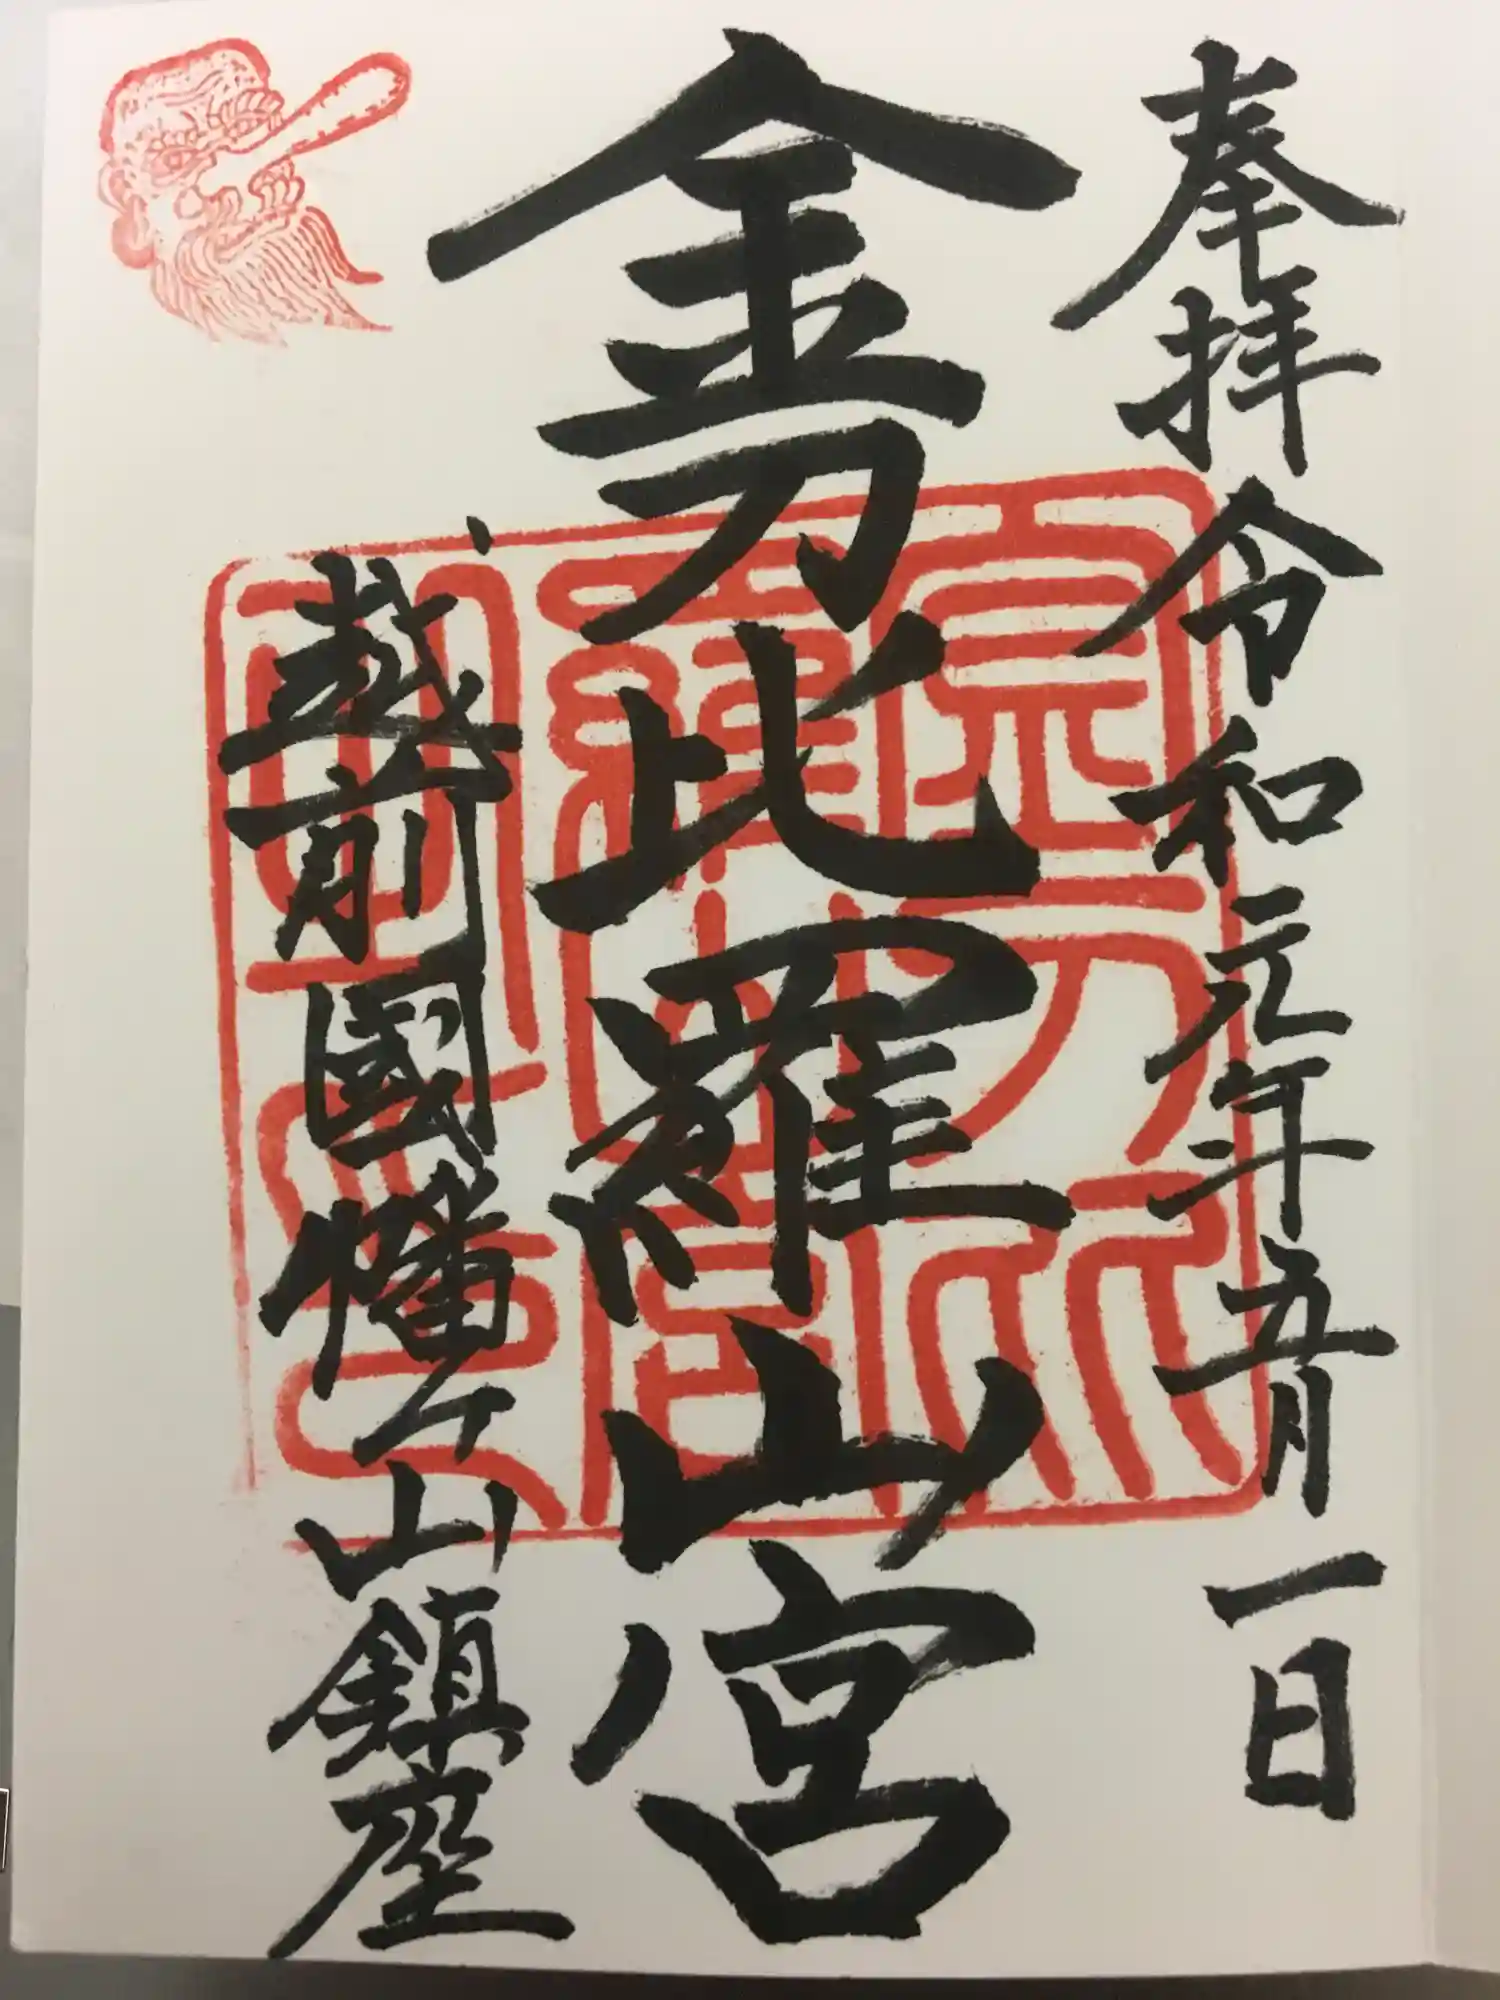 奉拝令和元年五月一日
金刀比羅山宮
越前國幡ケ山鎮座